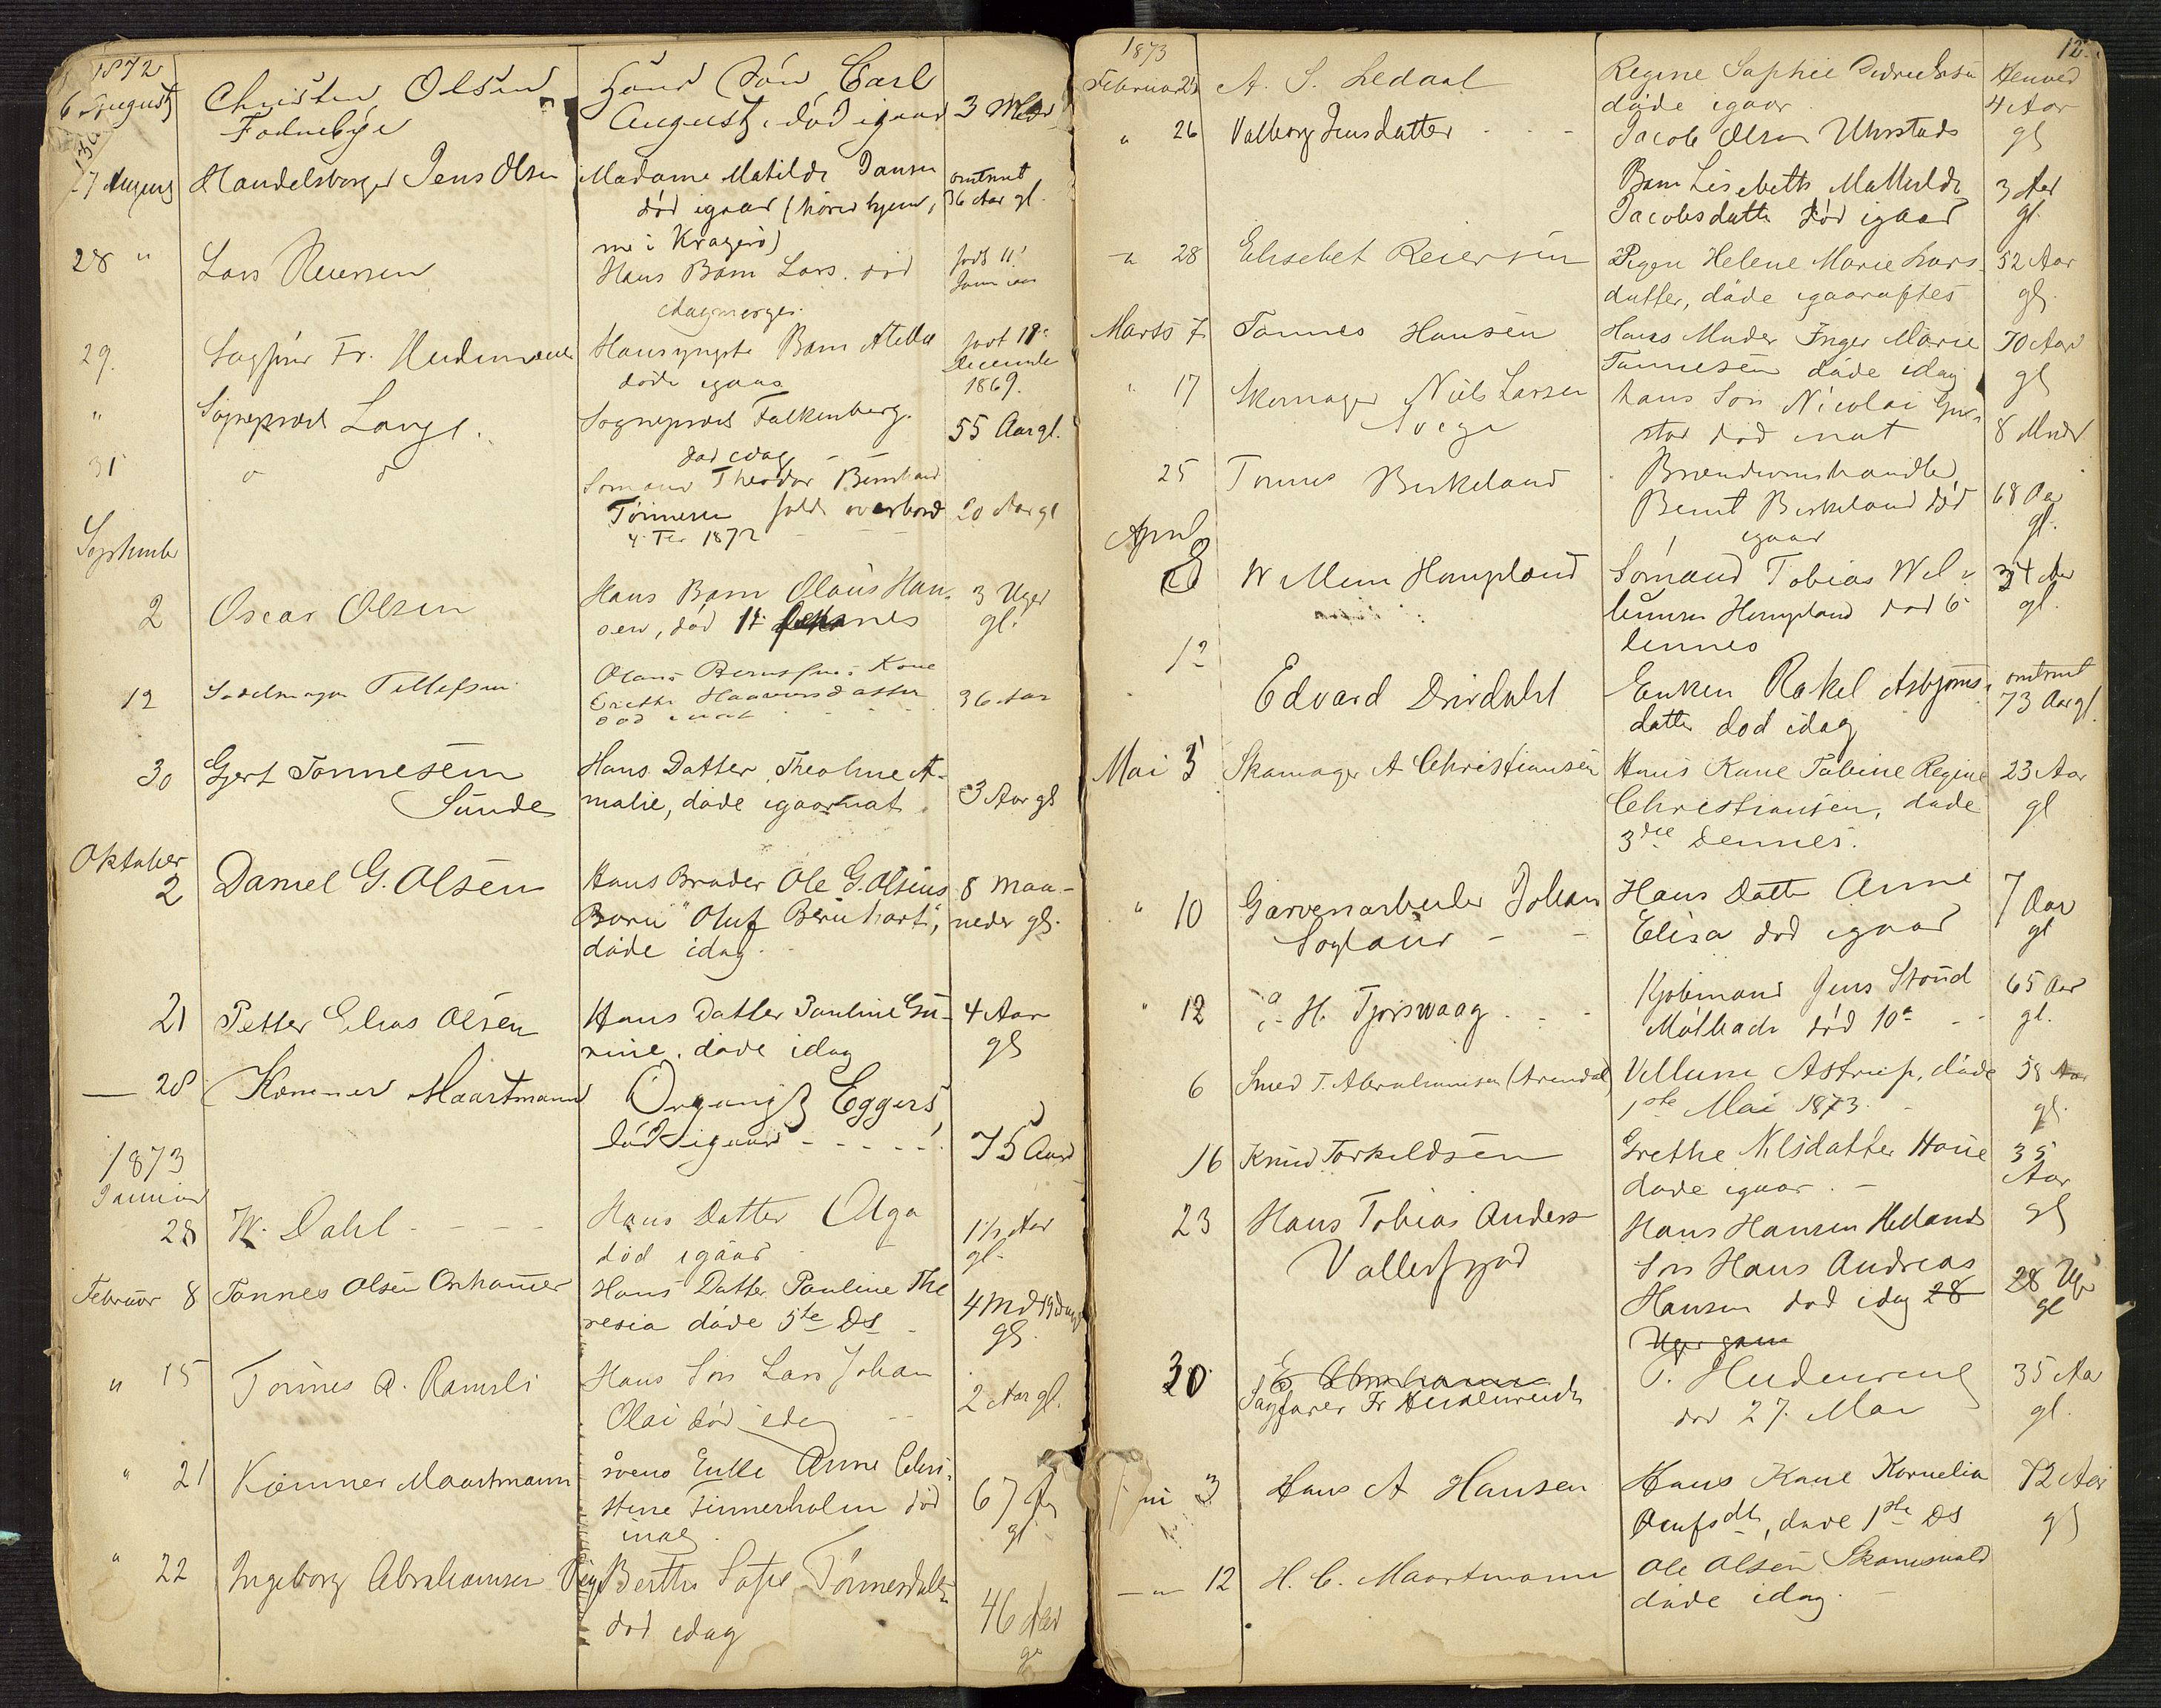 1872
6 August Christen Olsen Hans Søn Carl
August, død igaar 3 Mdr
27 August Handelsborger Jens Olsen Madame Matilde Jansen omtrent
død igaar (hører hjem- 36 Aar gl.
me i Kragerø)
28 " Lars Reiersen Hans Barn Lars død født 11
idagmorges.
29. Sagfører Fr. Hans yngste Barn født 18
døde igaar December
1869.
" Sogneprest Lange. Sogneprest Falkenberg 55 Aar gl.
død idag
31 " " Sømand Theodor Bernhard
Tønnesen faldt overbord 20 Aar gl
4 Feb 1872
September
2 Oscar Olsen Hans Barn Olaus Han- 3 Uger
sen, død 1t dennes gl.
12 Sadelmager Tellefsen Kone
36 Aar
død inat
30 Gjert Tønnesen Hans Datter Theoline A-
Sunde malie, døde igaarnat 3 Aar gl
Oktober
2 Daniel G. Olsen Hans Broder Ole G. Olsens 8 Maa-
Barn "Oluf Bernhart", neder gl.
døde idag.
21 Petter Elias Olsen Hans Datter Pauline Gu- 4 Aar
rine, døde idag gl
— 28 Kæmner Maartmann Organist Eggers,
død igaar 75 Aar
1873
Januar
28 W. Dahl Hans Datter Olga 1½ Aar
død igaar gl.
Februar 8 Tønnes Olsen Hans Datter Pauline The
resia døde 5te Ds 4 Md 19 Dage
gl.
" 15 Tønnes A. Ramsli Hans Søn Lars Johan
Olai død idag 2 Aar gl.
" 21 Kæmner Maartmann Enke Anne Chri-
stine Timmerholm død 67 Aar
idag gl
" 22 Ingeborg Abrahamsen Pige Berthe Sofie Tønnesdatter
død idag 46 Aar
gl
12.
1873
Februar 25 A. S. Ledaal Regine Sophie Didriksen Henved
døde igaar 4 Aar
" 26 Valborg Jensdatter Jacob Olsen Uhrstads gl
Barn Lisebeth Mathilde 3 Aar
Jacobsdatter død igaar gl.
" 28 Elisebet Reiersen Pigen Helene Marie Lars- 52 Aar
datter, døde igaaraftes gl.
Marts 7 Tønnes Hansen Hans Moder Inger Marie 70 Aar
Tønnesen døde idag gl
" 17 Skomager Niels Larsen hans Søn Nicolai Gus-
stav død inat 8 Mndr
25 Tønnes Birkeland Brændevinshandler
Bernt Birkeland død 68 Aar
igaar gl.
April
8 Willum Hompland Sømand Tobias Wil- 34 Aar
lumsen Hompland død 6 gl.
dennes
12 Edvard Drivdahl Enken Rakel Asbjørns- omtrent
datter død idag 73 Aar gl.
Mai 5 Skomager A Christiansen Hans Kone Tobine Regine 23 Aar
Christiansen, døde gl
3die Dennes.
" 10 Garveriarbeider Johan Hans Datter Anne 7 Aar
Sogland Elisa død igaar gl
" 12 H. Tjorswaag Kjøbmand Jens Stoud 65 Aar
Mølbach død 10de gl.
6 Smed T. Abrahamsen (Arendal) Vellum Astrup, døde 58 Aar
1ste Mai 1873. gl.
16 Knud Torkildsen Grethe Nilsdatter Haue 35
døde igaar. Aar
23 Hans Tobias Anders Hans Hansen Hellands gl
Søn Hans Andreas
Hansen død idag 28 28 Uger
Uger gam gl
30 Sagfører Fr Heidenreich T. Heidenreich 35 Aar
død 27. Mai gl.
Juni 3 Hans A Hansen Hans Kone Kornelia 72 Aar
døde 1ste Ds gl
—"— 12 H. C. Maartmann Ole Olsen
døde idag.